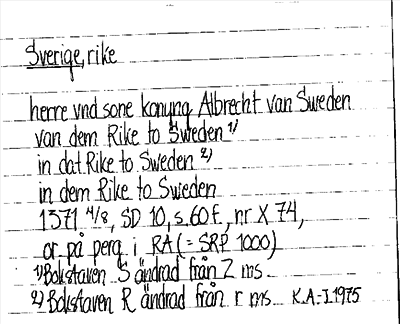 Sverige, rike
herre vnd sone konung Albrecht van Sweden
van dem Rike to Sweden 1)
in dat Rike to Sweden 2)
in dem Rike to Sweden
1371 4/8, SD 10, s. 60 f., nr X 74,
or på perg i RA (= SRP 1000)
1) Bokstaven S ändrad från Z ms
2) Bokstaven R ändrad från r ms K.A.-J. 1975